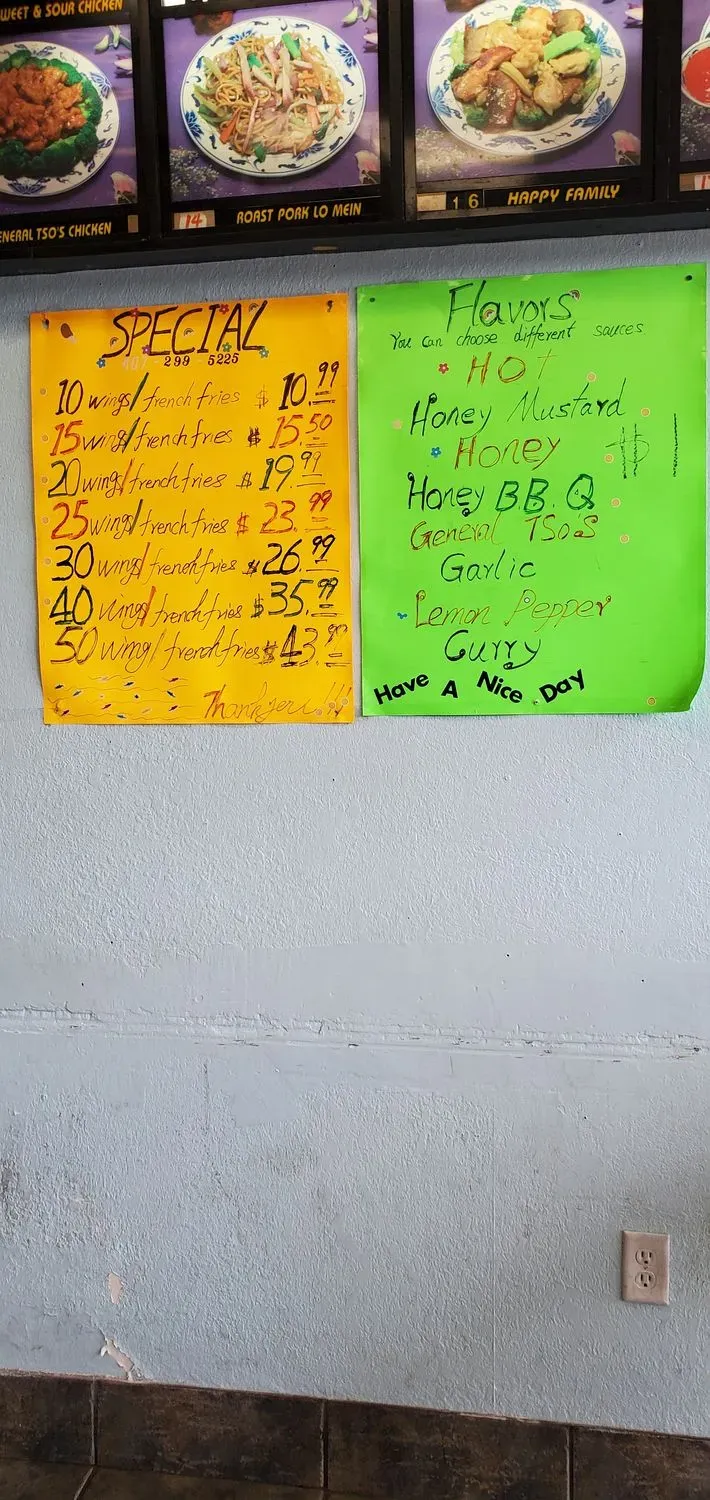 WEET & SOUR CHICKEN
ENERAL TSO'S CHICKEN
14
ROAST PORK LO MEIN
16 HAPPY FAMILY
SPECIAL
407-299-5225
10 wings/french fries $10.99
15 wings/french fries $15.50
20 wings/french fries $19.99
25 wings/french fries $23.99
30 wings/french fries $26.99
40 wings/french fries $35.99
50 wing/french fries $43.99
Thank you!!!
Flavors
You can choose different sauces
HOT
Honey Mustard
Honey $1
Honey B.B.Q
General TSO'S
Garlic
Lemon Pepper
Curry
Have A Nice Day